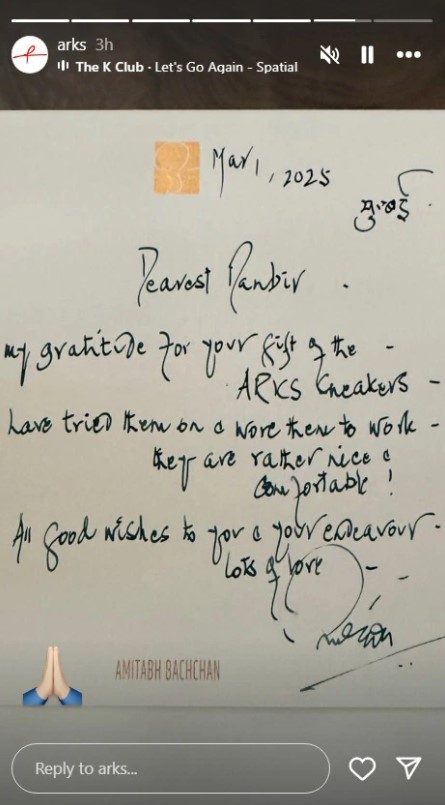 arks 3h
The K Club · Let's Go Again - Spatial
Mar 1, 2025
मुम्बई
Dearest Ranbir
my gratitude for your gift of the -
ARKS sneakers -
have tried them on & wore them to work -
they are rather nice &
comfortable !
All good wishes to you & your endeavour -
lots of love -
AMITABH BACHCHAN
Reply to arks...